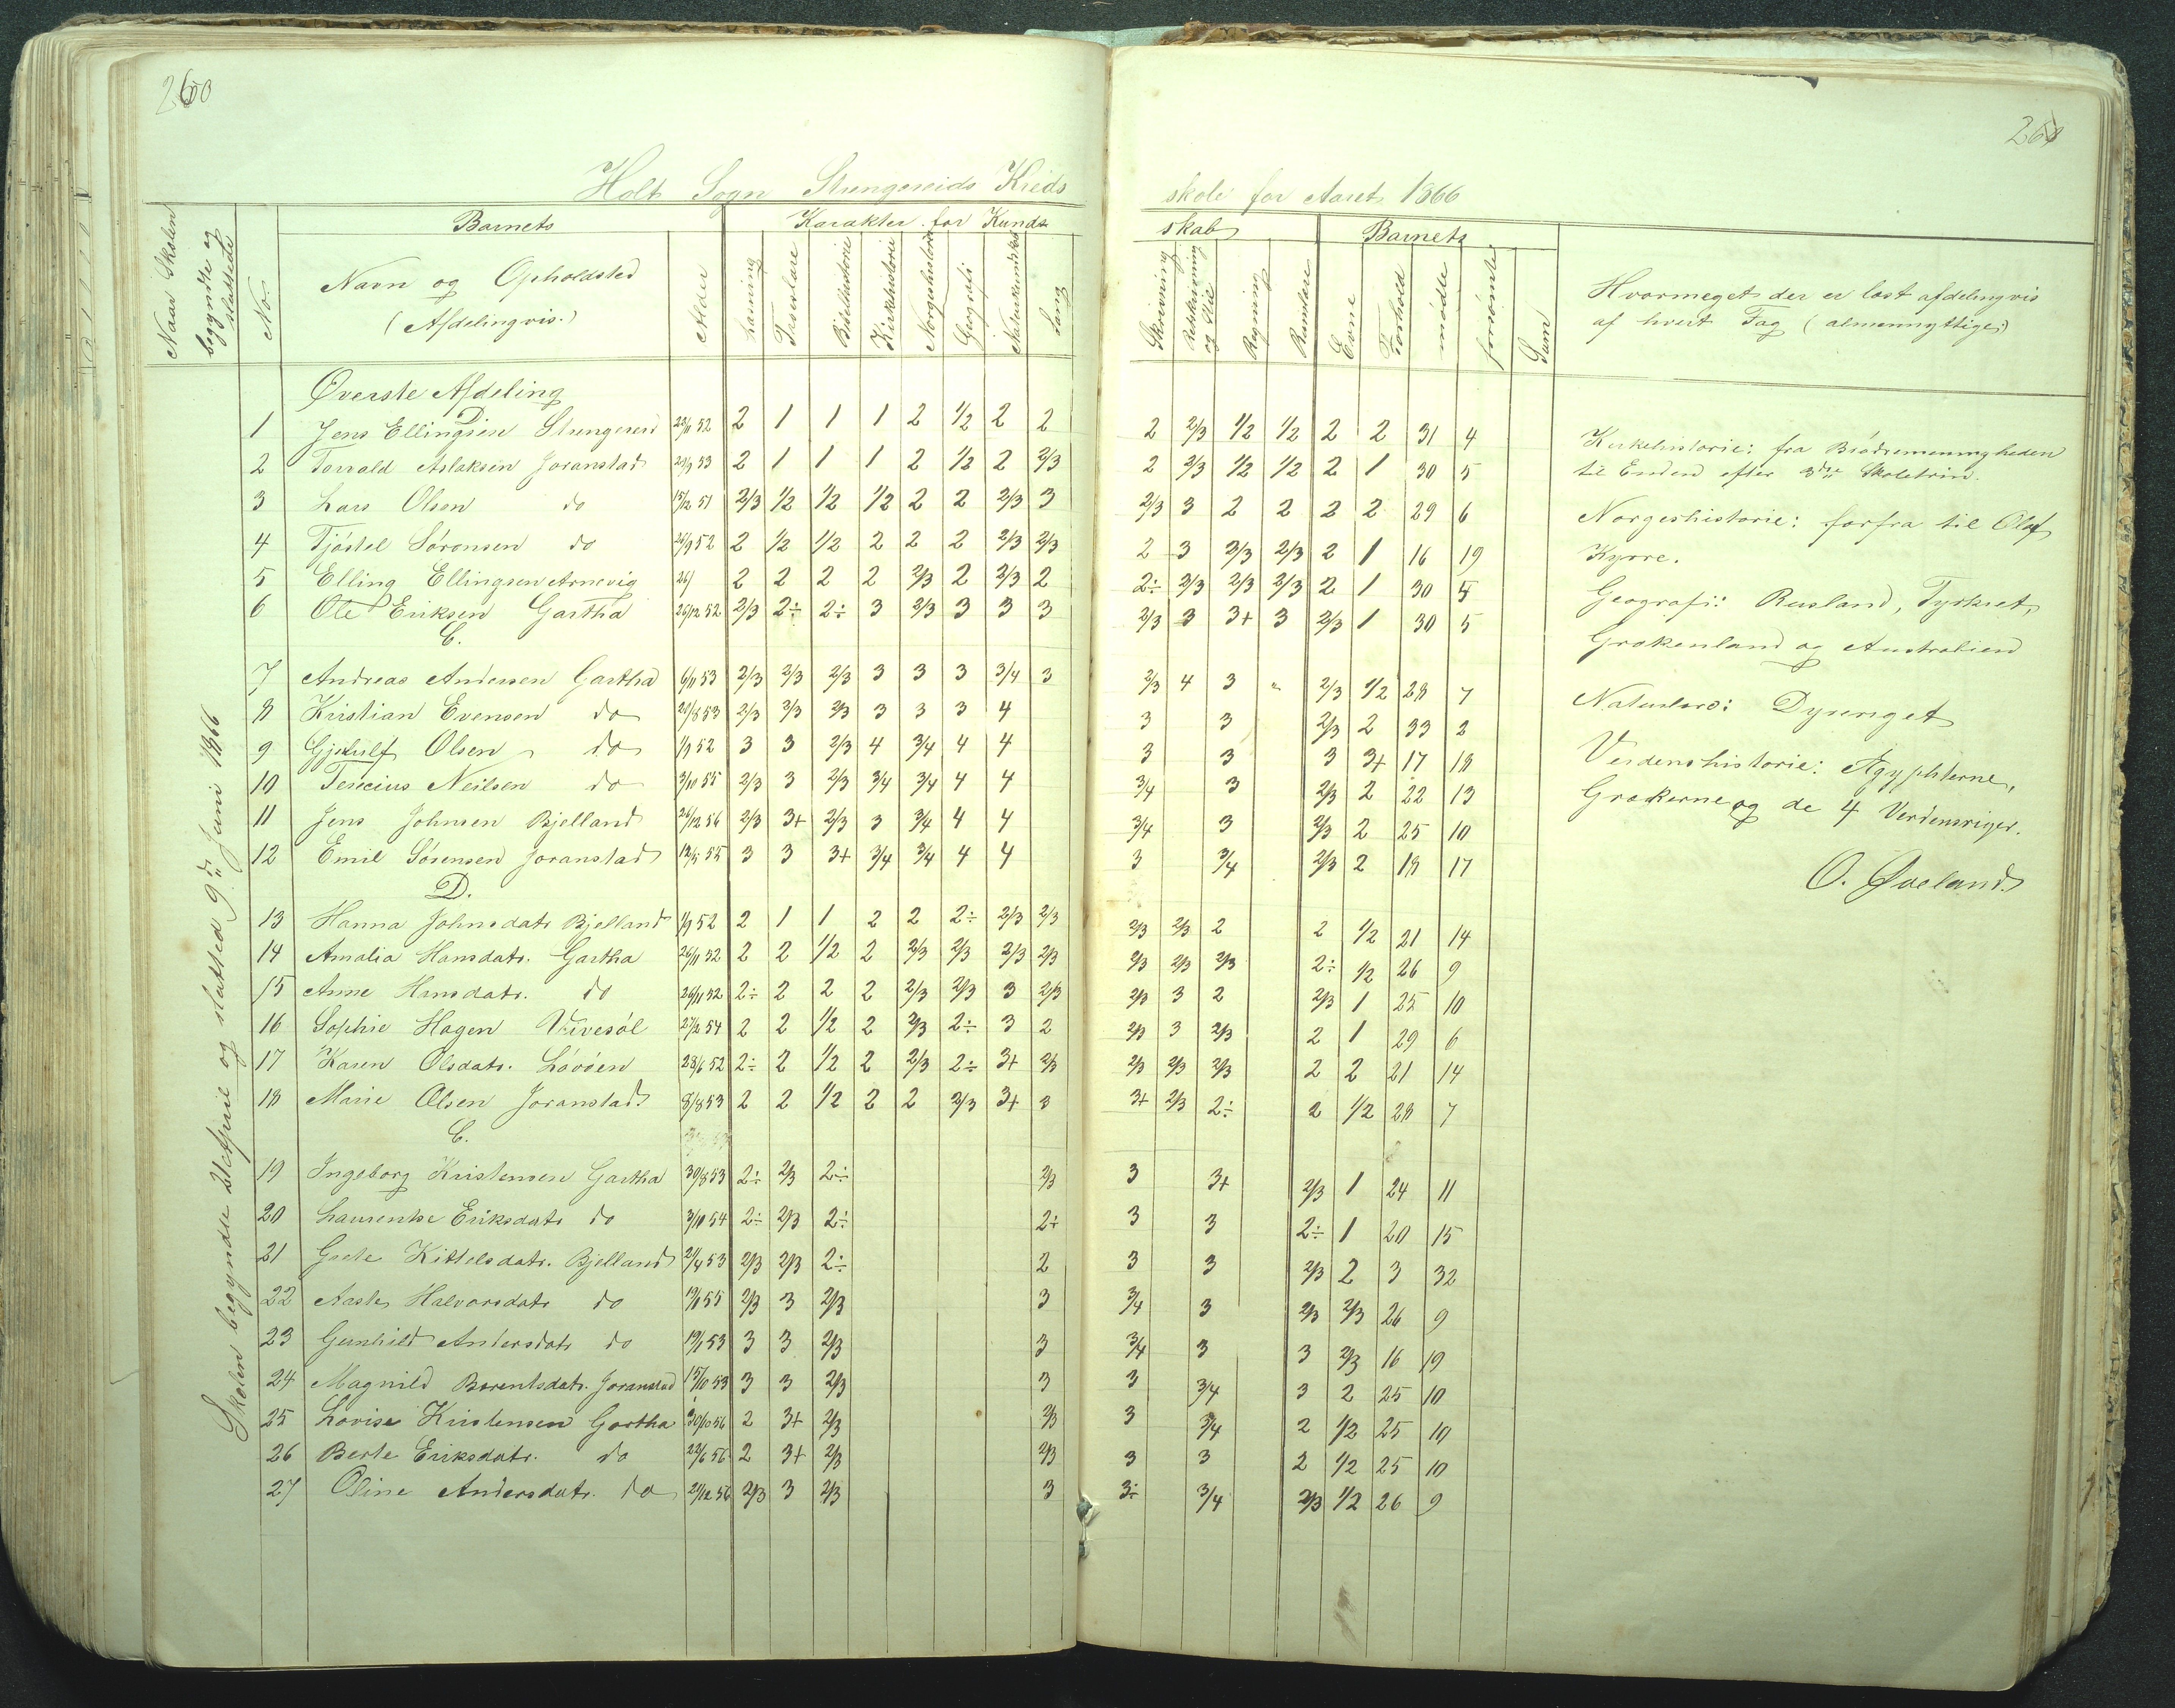 260
Holt Sogn Strengereids Kreds
Naar Skolen begyndte og sluttede
No.
Barnets
Navn og Opholdsted
(Afdelingvis.)
Alder
Karakter for Kunds
Læsning
Troeslære
Bibelhistorie
Kirkehistorie
Norgeshistorie
Geografi
Naturkundskab
Sang
Skolen begyndte 21 April og sluttede 9de Juni 1866
Øverste Afdeling
D.
1 Jens Ellingsen Strengereid 23/11 52 2 1 1 1 2 1/2 2 2
2 Torvald Aslaksen Joranstad 29/9 53 2 1 1 1 2 1/2 2 2/3
3 Lars Olsen do 15/12 51 2/3 1/2 1/2 1/2 2 2 2/3 3
4 Tjöstel Sörensen do 24/9 52 2 1/2 1/2 2 2 2 2/3 2/3
5 Elling Ellingsen Arnevig 26/ 2 2 2 2 2/3 2 2/3 2
6 Ole Eriksen Gartha 26/12 52 2/3 2÷ 2÷ 3 2/3 3 3 3
C.
7 Andreas Andersen Gartha 6/11 53 2/3 2/3 2/3 3 3 3 3/4 3
8 Kristian Evensen do 20/8 53 2/3 2/3 2/3 3 3 3 4
9 Gjetulf Olsen do 1/9 52 3 3 2/3 4 3/4 4 4
10 Terecius Neilsen do 3/10 55 2/3 3 2/3 3/4 3/4 4 4
11 Jens Johnsen Bjelland 26/12 56 2/3 3+ 2/3 3 3/4 4 4
12 Emil Sørensen Joranstad 12/5 55 3 3 3+ 3/4 3/4 4 4
D.
13 Hanna Johnsdatr Bjelland 1/9 52 2 1 1 2 2 2÷ 2/3 2/3
14 Amalia Hansdatr. Gartha 26/11 52 2 2 1/2 2 2/3 2/3 2/3 2/3
15 Anne Hansdatr. do 26/11 52 2÷ 2 2 2 2/3 2/3 3 2/3
16 Sophie Hagen Vivesöl 27/2 54 2 2 1/2 2 2/3 2÷ 3 2
17 Karen Olsdatr. Lövöen 28/6 52 2÷ 2 1/2 2 2/3 2÷ 3+ 2/3
18 Marie Olsen Joranstad 8/8 53 2 2 1/2 2 2 2/3 3+ 3
C.
19 Ingeborg Kristensen Gartha 30/8 53 2÷ 2/3 2÷ 2/3
20 Laurentse Eriksdatr do 3/10 54 2÷ 2/3 2÷ 2÷
21 Grete Kittelsdatr. Bjelland 21/4 53 2/3 2/3 2÷ 2
22 Aaste Halvorsdatr do 19/1 55 2/3 3 2/3 3
23 Gunhild Andersdatr do 19/1 53 3 3 2/3 3
24 Magnild Berentsdatr. Joranstad 15/10 53 3 3 2/3 3
25 Lovise Kristensen Gartha 30/10 56 2 3+ 2/3 2/3
26 Berte Eriksdatr. do 22/6 56 2 3+ 2/3 2/3
27 Oline Andersdatr. do 21/12 56 2/3 3 2/3 3
261
skole for Aaret 1866
skab
Skrivning
Retskrivning og Stil
Regning
Barnets
Evne
Forhold
mødte
forsømte
Sum
Hvormeget der er læst afdelingvis
af hvert Fag (almennyttige)
2 2/3 1/2 1/2 2 2 31 4
2 2/3 1/2 1/2 2 1 30 5
2/3 3 2 2 2 2 29 6
2 3 2/3 2/3 2 1 16 19
2÷ 2/3 2/3 2/3 2 1 30 5
2/3 3 3+ 3 2/3 1 30 5
2/3 4 3 " 2/3 1/2 28 7
3 3 2/3 2 33 2
3 3 3 3+ 17 18
3/4 3 2/3 2 22 13
3/4 3 2/3 2 25 10
3 3/4 2/3 2 18 17
2/3 2/3 2 2 1/2 21 14
2/3 2/3 2/3 2÷ 1/2 26 9
2/3 3 2 2/3 1 25 10
2/3 3 2/3 2 1 29 6
2/3 2/3 2/3 2 2 21 14
3+ 2/3 2÷ 2 1/2 28 7
3 3+ 2/3 1 24 11
3 3 2÷ 1 20 15
3 3 2/3 2 3 32
3/4 3 2/3 2/3 26 9
3/4 3 3 2/3 16 19
3 3/4 3 2 25 10
3 3/4 2 1/2 25 10
3 3 2 1/2 25 10
3÷ 3/4 2/3 1/2 26 9
Kirkehistorie: fra Brödremenigheden
til Enden efter 3die Skoletrin.
Norgeshistorie: forfra til Olaf
Kyrre.
Geografi: Rusland, Tyrkiet,
Grækenland og Australien
Naturlære: Dyrenget
Verdenshistorie: Ægyphterne,
Grækerne og de 4 Verdensriger.
O. Øveland